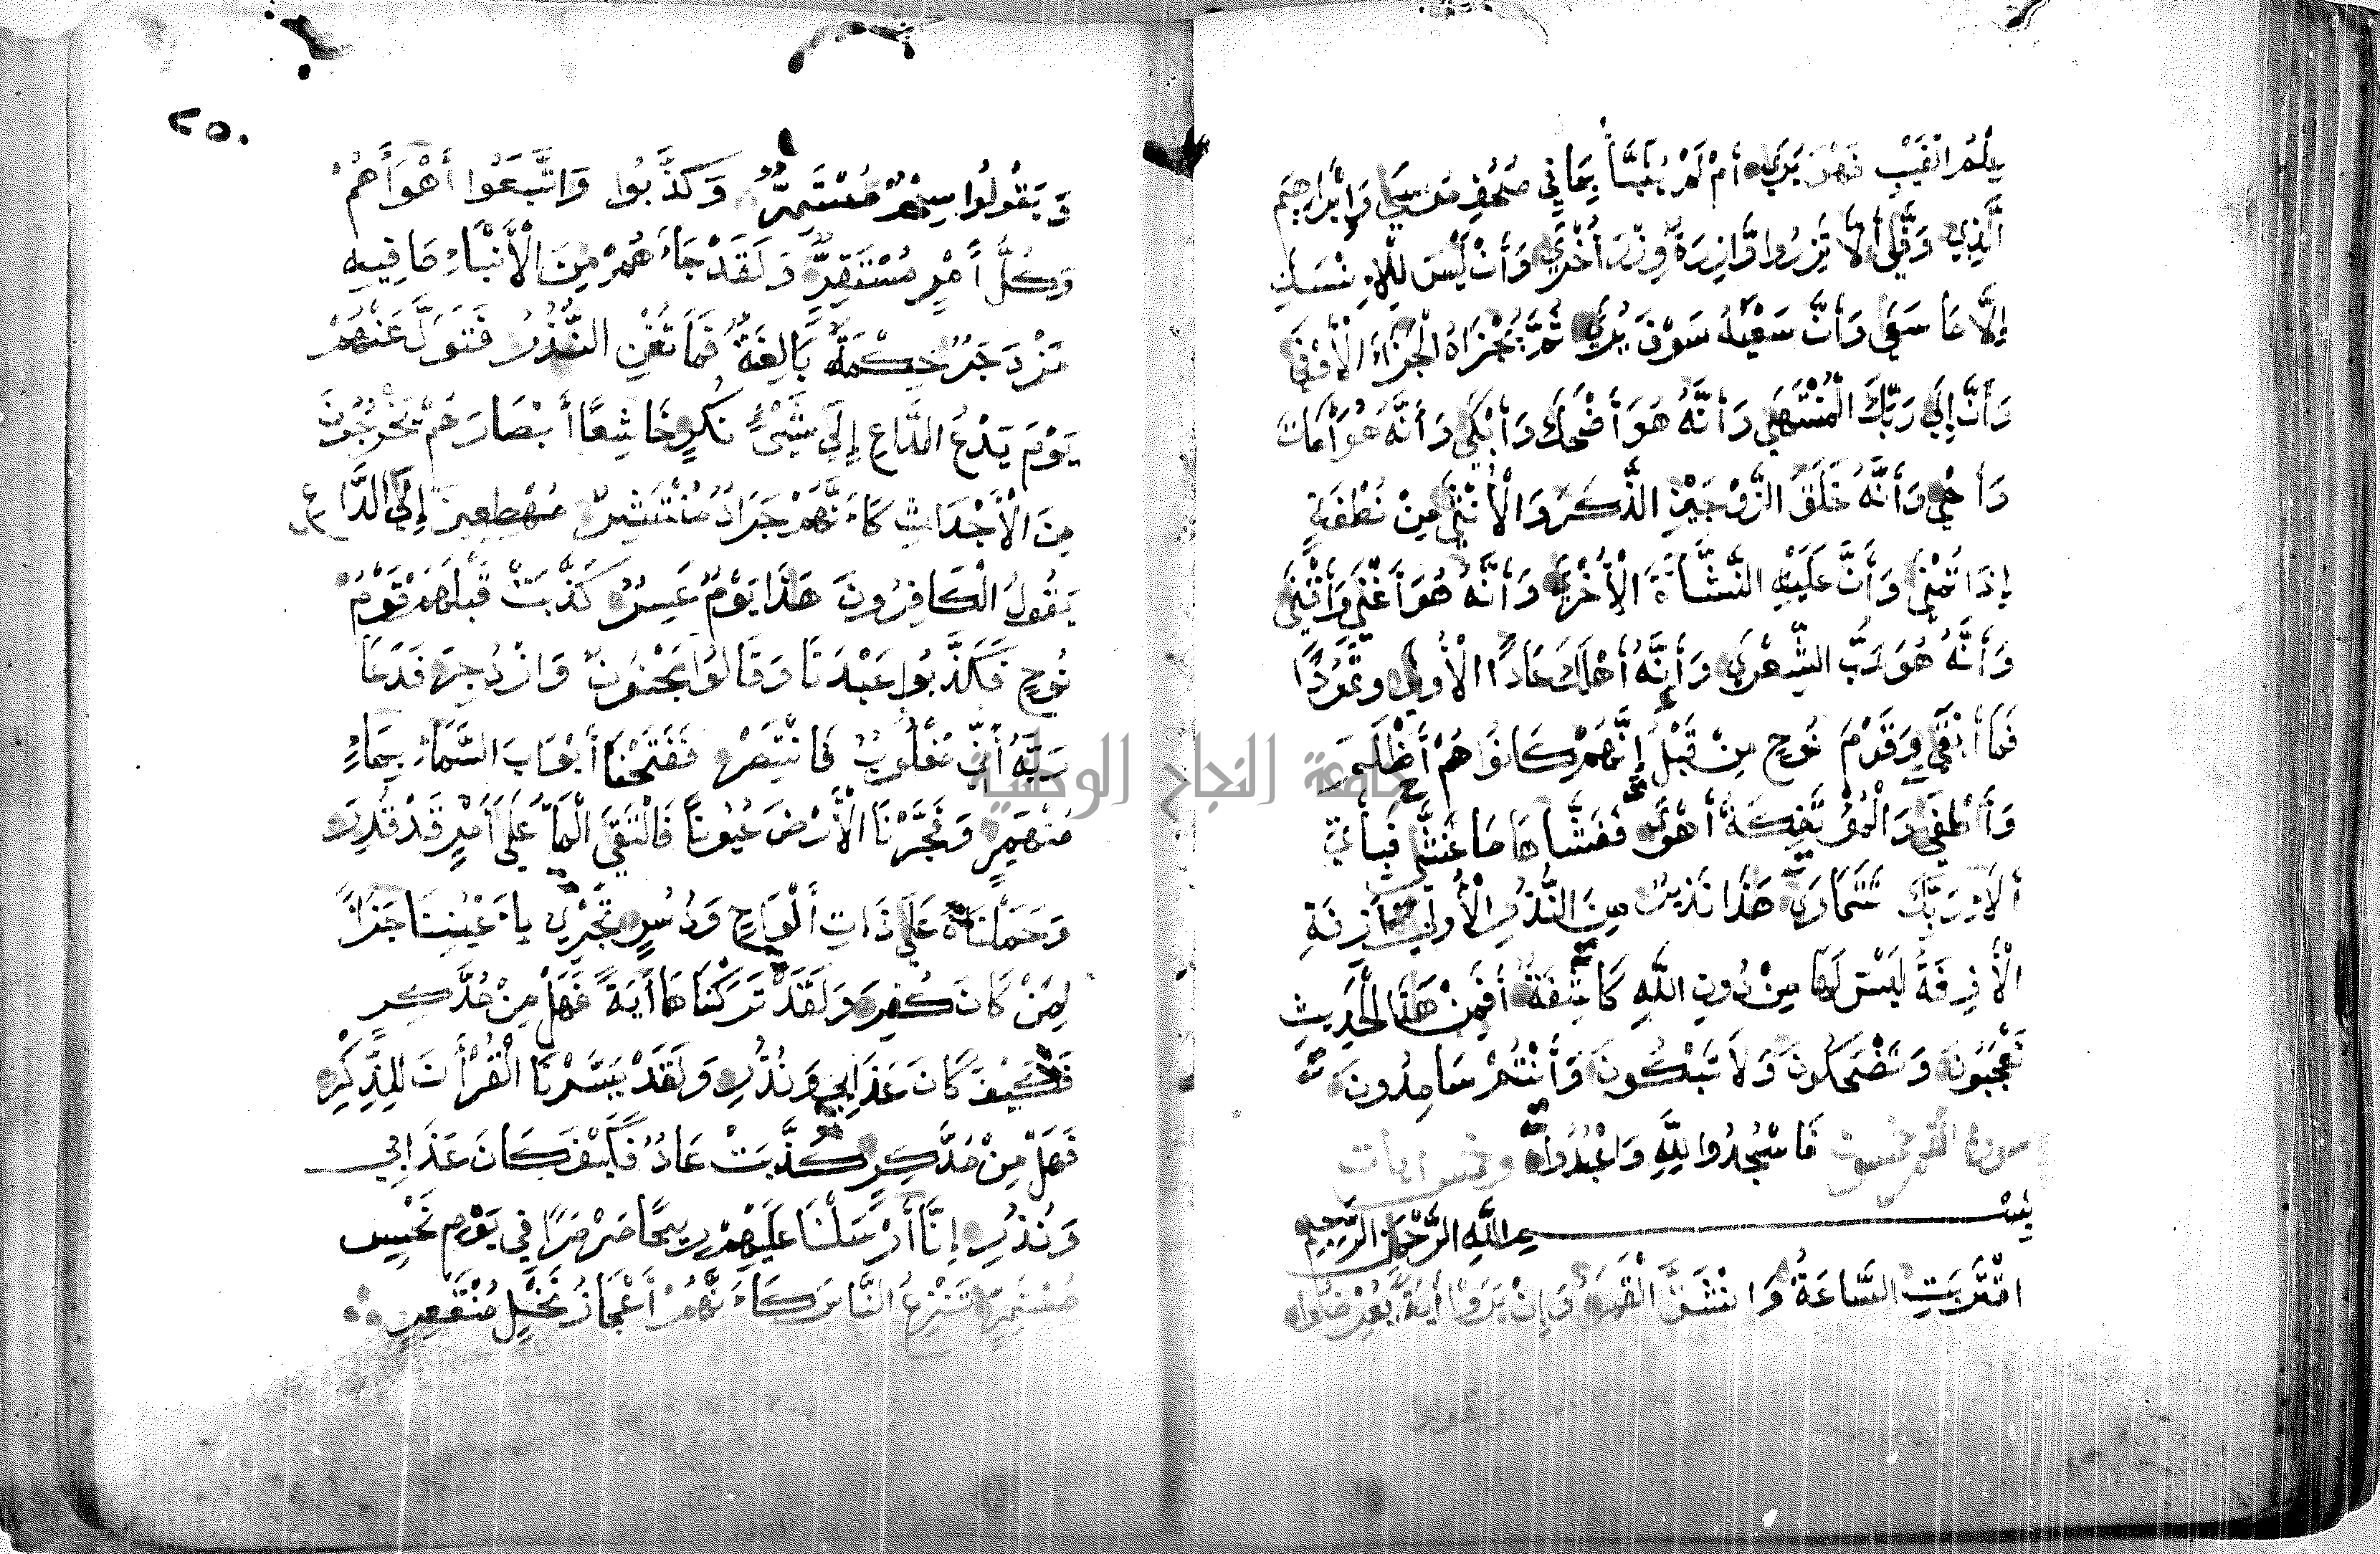 عِلْمُ الْغَيْبِ فَهُوَ يَرَي أَمْ لَمْ يُنَبَّأْ بِمَا فِي صُحُفِ مُوسَي وَإِبْرَاهِيمَ
الَّذِي وَفَّي أَلَّا تَزِرُوا وَازِرَةٌ وِزْرَ أُخْرَي وَأَنْ لَيْسَ لِلْإِنْسَانِ
إِلَّا مَا سَعَي وَأَنَّ سَعْيَهُ سَوْفَ يُرَي ثُمَّ يُجْزَاهُ الْجَزَاءَ الْأَوْفَي
وَأَنَّ إِلَي رَبِّكَ الْمُنْتَهَي وَأَنَّهُ هُوَ أَضْحَكَ وَأَبْكَي وَأَنَّهُ هُوَ أَمَاتَ
وَأَحْيَي وَأَنَّهُ خَلَقَ الزَّوْجَيْنِ الذَّكَرَ وَالْأُنْثَي مِنْ نُطْفَةٍ
إِذَا تُمْنَي وَأَنَّ عَلَيْهِ النَّشْأَةَ الْأُخْرَي وَأَنَّهُ هُوَ أَغْنَي وَأَقْنَي
وَأَنَّهُ هُوَ رَبُّ الشِّعْرَي وَأَنَّهُ أَهْلَكَ عَادًا الْأُولَي وَثَمُودًا
فَمَا أَبْقَي وَقَوْمَ نُوحٍ مِنْ قَبْلُ إِنَّهُمْ كَانُوا هُمْ أَظْلَمَ
وَأَطْغَي وَالْمُؤْتَفِكَةَ أَهْوَي فَغَشَّاهَا مَا غَشَّي فَبِأَيِّ
أَلَاءِ رَبِّكَ تَتَمَارَي هَذَا نَذِيرٌ مِنَ النُّذُرِ الْأُولَي أَزِفَةِ
الْأَزِفَةُ لَيْسَ لَهَا مِنْ دُونِ اللَّهِ كَاشِفَةٌ أَفَمِنْ هَذَا الْحَدِيثِ
تَعْجَبُونَ وَتَضْحَكُونَ وَلَا تَبْكُونَ وَأَنْتُمْ سَامِدُونَ
سورة القمر خمسون فَاسْجُدُوا لِلَّهِ وَاعْبُدُوا وخمس ايات
بِسْمِ اللَّهِ الرَّحْمَنِ الرَّحِيمِ
اقْتَرَبَتِ السَّاعَةُ وَانْشَقَّ الْقَمَرُ وَإِنْ يَرَوْا أَيَةً يُعْرِضُوا
٢٥٠
وَيَقُولُوا سِحْرٌ مُسْتَمِرٌّ وَكَذَّبُوا وَاتَّبَعُوا أَهْوَأَهُمْ
وَكُلُّ أَمْرٍ مُسْتَقِرٌّ وَلَقَدْ جَاءَهُمْ مِنَ الْأَنْبَاءِ مَا فِيهِ
مَزْدَجَرٌ حِكْمَةٌ بَالِغَةٌ فَمَا تُغْنِ النُّذُرُ فَتَوَلَّ عَنْهُمْ
يَوْمَ يَدْعُ الدَّاعِ إِلَي شَيْءٍ نُكُرٍ خَاشِعًا أَبْصَارَهُمْ يَخْرُجُونَ
مِنَ الْأَجْدَاثِ كَاَنَّهُمْ جَرَادٌ مُنْتَشِرٌ مُهْطِعِينَ إِلَي الدَّاعِ
يَقُولُ الْكَافِرُونَ هَذَا يَوْمٌ عَسِرٌ كَذَّبَتْ قَبْلَهُمْ قَوْمُ
نُوحٍ فَكَذَّبُوا عَبْدَنَا وَقَالُوا مَجْنُونٌ وَازْدُجِرَ فَدَعَا
رَبَّهُ أَنِّي مَغْلُوبٌ فَانْتَصِرْ فَفَتَحْنَا أَبْوَابَ السَّمَاءِ بِمَاءٍ
مُنْهَمِرٍ وَفَجَّرْنَا الْأَرْضَ عُيُونًا فَالْتَقَي الْمَاءُ عَلَي أَمْرٍ قَدْ قُدِرَ
وَحَمَلْنَاهُ عَلَي ذَاتِ أَلْوَاحٍ وَدُسُرٍ تَجْرِي بِأَعْيُنِنَا جَزَاءً
لِمَنْ كَانَ كُفِرَ وَلَقَدْ تَرَكْنَاهَا أَيَةً فَهَلْ مِنْ مُدَّكِرٍ
فَكَيْفَ كَانَ عَذَابِي وَنُذُرِ وَلَقَدْ يَسَّرْنَا الْقُرْأَنَ لِلذِّكْرِ
فَهَلْ مِنْ مُدَّكِرٍ كَذَّبَتْ عَادٌ فَكَيْفَ كَانَ عَذَابِي
وَنُذُرِ إِنَّا أَرْسَلْنَا عَلَيْهِمْ رِيحًا صَرْصَرًا فِي يَوْمِ نَحْسٍ
مُسْتَمِرٍّ تَنْزِعُ النَّاسَ كَاَنَّهُمْ أَعْجَازُ نَخْلٍ مُنْقَعِرٍ
جامعة النجاح الوطنية